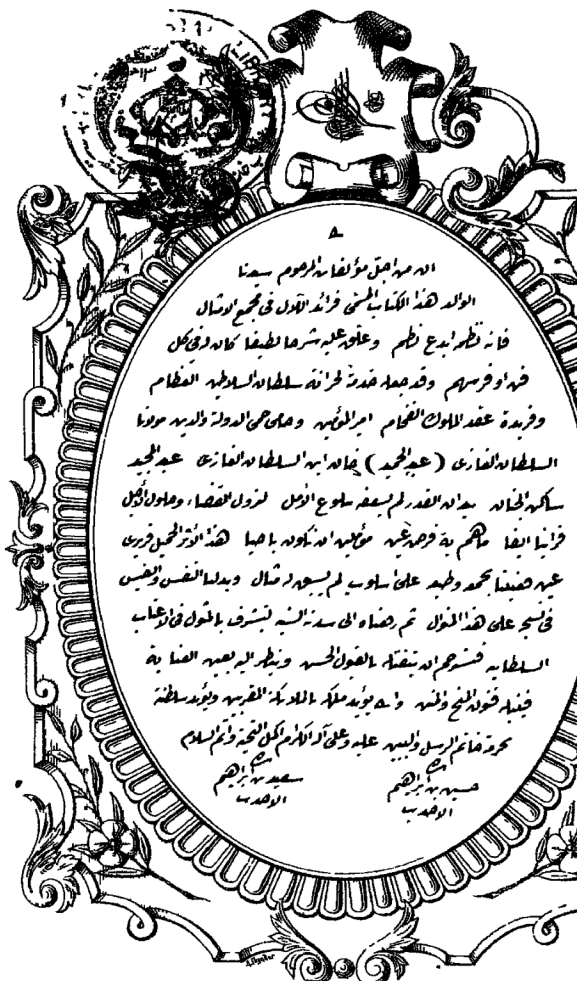 ان من اجل مؤلفات المرحوم سيدنا
الوالد هذا الكتاب المسمى فرائد اللآل فى مجمع الامثال
فانه نظمه ابدع نظم وعلق عليه شرحا لطيفا كان له فى كل
فن اوفر سهم وقد جعله خدمة لخزانة سلطان السلاطين العظام
وفريدة عقد الملوك الفخام امير المؤمنين وحامى حمى الدولة والدين مولانا
السلطان الغازى (عبد الحميد) خان ابن السلطان الغازى عبد المجيد
ساكن الجنان بيد ان القدر لم يسعفه ببلوغ الأمل لنزول القضاء وحلول الأجل
فرأينا ايفا ما هم به فرض عين مؤملين ان نكون باحيا هذا الأثر الجميل قريرى
عين فعنينا بجمعه وطبعه على اسلوب لم يسبق له مثال وبذلنا النفس والنفيس
فى نسج على هذا المنوال ثم رفعناه الى سدته السنيه ليتشرف بالمثول فى الاعتاب
السلطانيه فنسترحم ان يتقبله بالقبول الحسن وينظر اليه بعين العناية
فينيله فنون المنح والمنن والله يؤيد ملكه بالملائكة المقربين ويؤيد سلطنته
بحرمة خاتم الرسل والنبيين عليه وعلى آله الكرام اكمل التحية واتم السلام
حسين بن ابراهيم
الاحدب
سعيد بن ابراهيم
الاحدب